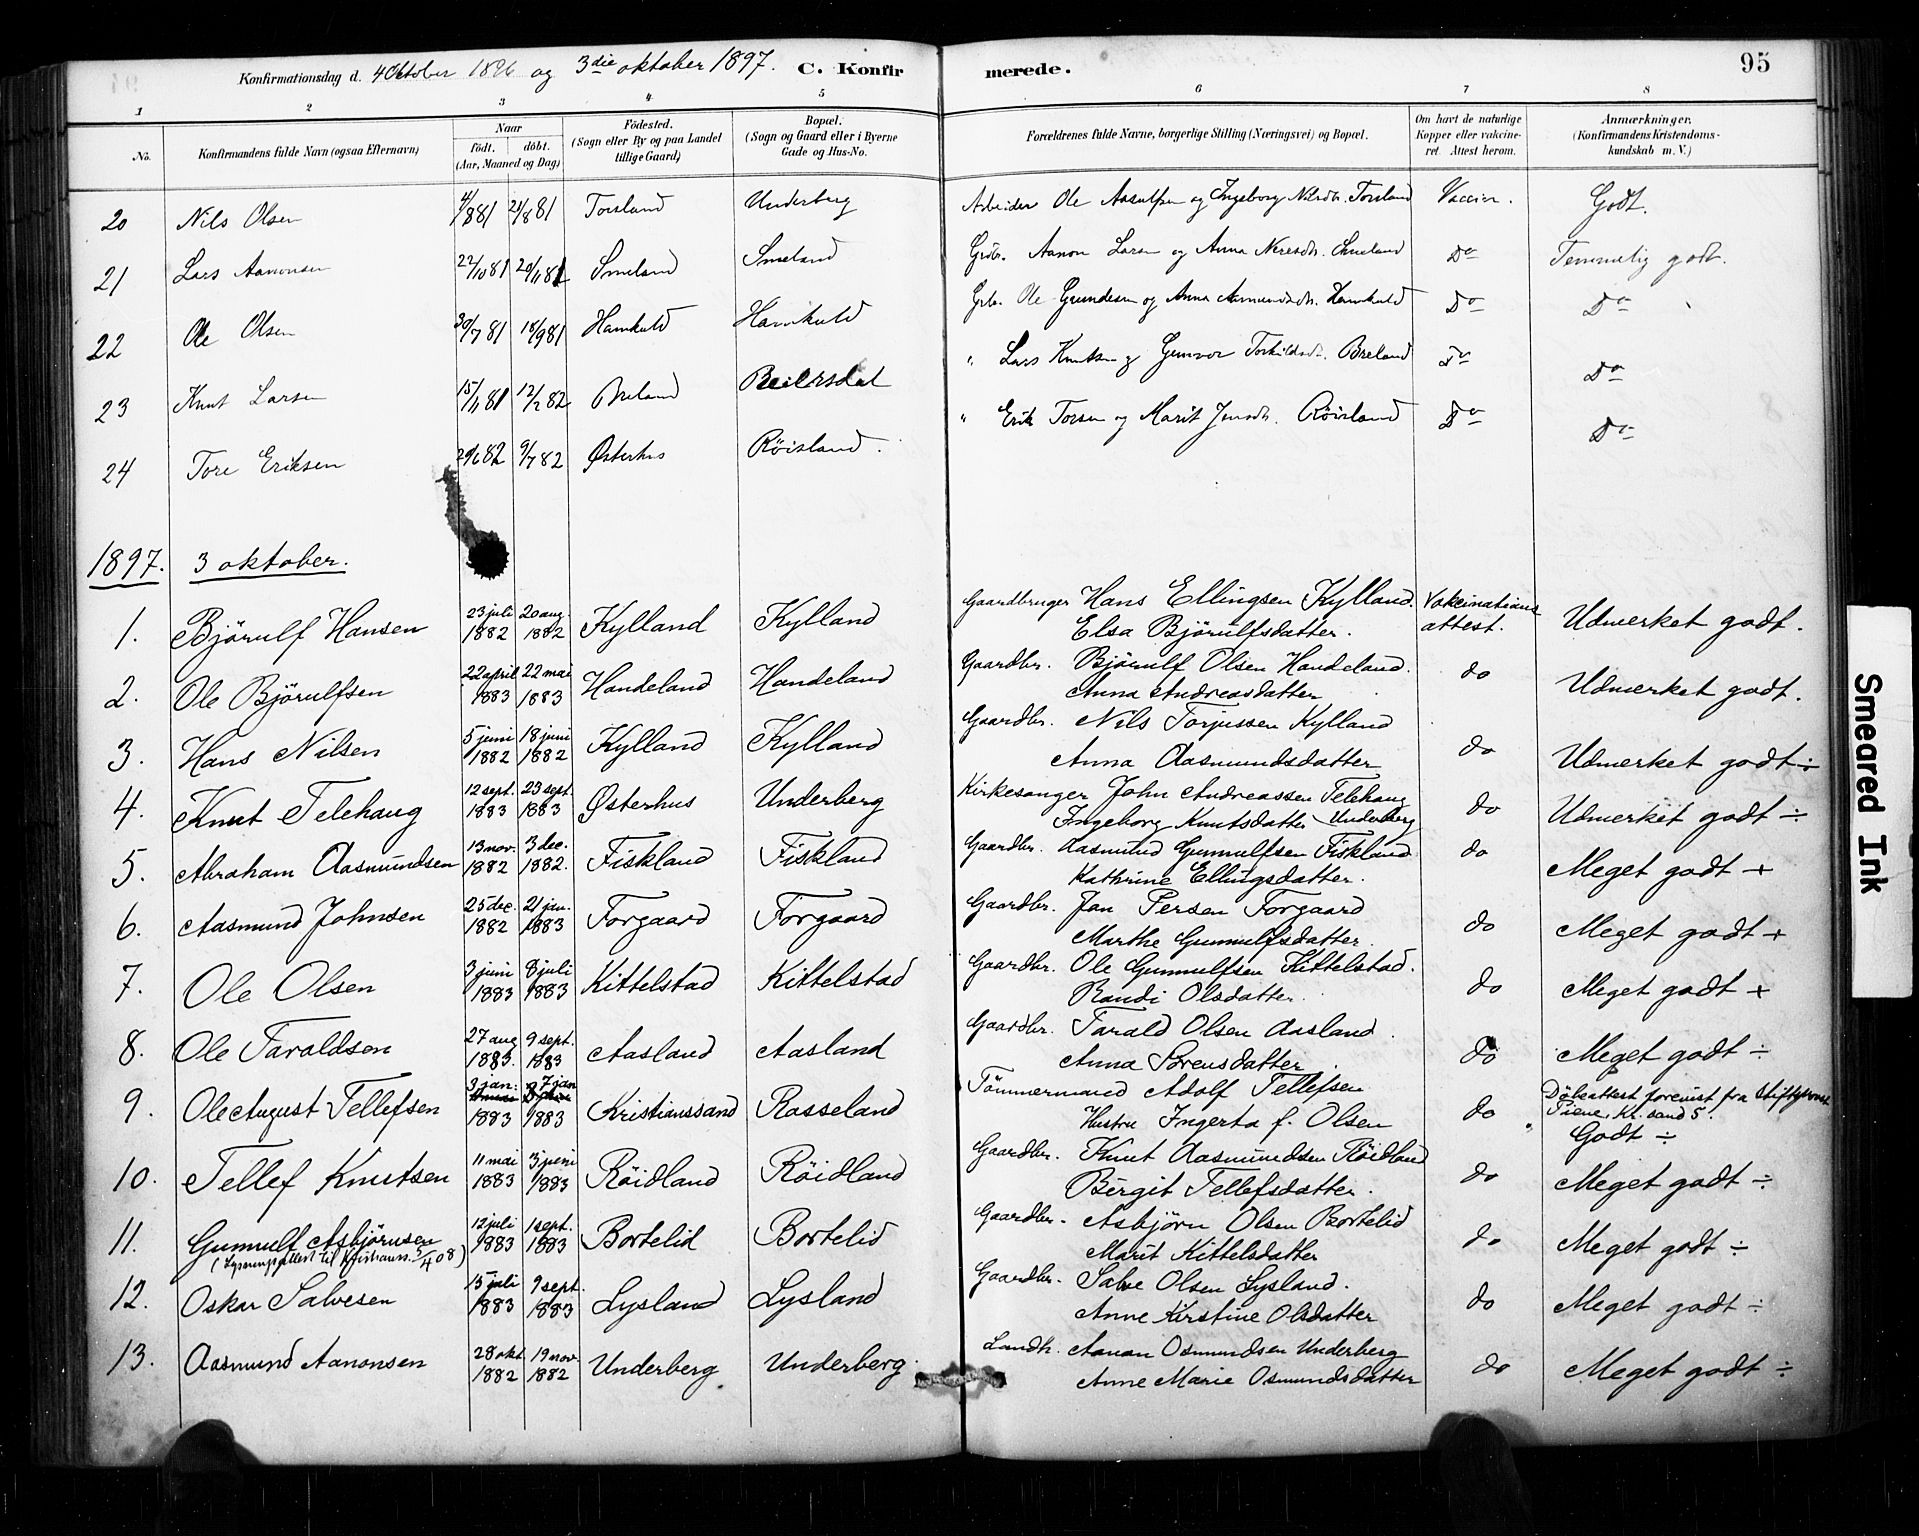 Konfirmationsdag d. 4 Oktober 1896 og 3die oktober 1897. C. Konfirmerede. 95
1 2 3 4 5 6 7 8
No. Konfirmandens fulde Navn (ogsaa Efternavn) Naar født. døbt. (Aar, Maaned og Dag) Fødested. (Sogn eller By og paa Landet tillige Gaard) Bopæl. (Sogn og Gaard eller i Byerne Gade og Hus-No. Forældrenes fulde Navne, borgerlige Stilling (Næringsvei) og Bopæl. Om havt de naturlige Kopper eller vakcineret. Attest herom. Anmærkninger. (Konfirmandens Kristendomskundskab m. V.)
20 Nils Olsen 21/8 81 Torsland Underberg Arbeider Ole Aasulfsen og Ingeborg Nilsdtr. Torsland Vaccin. Godt.
21 Lars Aanonsen 22/10 81 20/11 81 Smeland Smeland Grdbr. Aanon Larsen og Anna Neresdtr. Smeland Do Temmelig godt.
22 Ole Olsen 30/7 81 18/9 81 Hamkuld Hamkuld Grb. Ole Gundesen og Anna Asmundsdtr. Hamkuld Do Do
23 Knut Larsen 15/11 81 12/2 82 Breland Beiersdal " Lars Knutsen og Gunvor Torkildsdt. Breland Do Do
24 Tore Eriksen 20/6 82 9/7 82 Østerhus Røisland. " Erik Torsen og Marit Jensdtr. Røisland Do Do
1897. 3 oktober.
1. Bjørulf Hansen 23 juli 1882 20 aug. 1882 Kylland Kylland Gaardbruger Hans Ellingsen Kylland. Elsa Bjørulfsdatter. Vakcinations attest. Udmerket godt.
2. Ole Bjørulfsen 22 april 1883 22 mai 1883 Handeland Handeland Gaardbr. Bjørulf Olsen Handeland. Anna Andreasdatter do Udmerket godt.
3. Hans Nilsen 5 juni 1882 18 juni 1882 Kylland Kylland Gaardbr. Nils Torjussen Kylland Anna Aasmundsdatter do Udmerket godt ÷
4. Knut Telehaug 12 sept. 1883 23 sept. 1883 Østerhus Underberg Kirkesanger John Andreassen Telehaug Ingeborg Knutsdatter Underberg do Udmerket godt ÷
5. Abraham Aasmundsen 13 nov. 1882 3 dec. 1882. Fiskland Fiskland Gaardbr. Aasmund Gunnulfsen Fiskland Kathrine Ellingsdatter. do Meget godt +
6. Aasmund Johnsen 25 dec. 1882 21 jan. 1883 Forgaard Forgaard Gaardbr. Jon Persen Forgaard Marthe Gunnulfsdatter. do Meget godt +
7. Ole Olsen 3 juni 1883 8 juli 1883 Kittelstad Kittelstad Gaardbr. Ole Gunnulfsen Kittelstad. Randi Olsdatter. do Meget godt +
8. Ole Taraldsen 27 aug 1883. 9 sept. 1883 Aasland Aasland Gaardbr. Tarald Olsen Aasland. Anna Sørensdatter. do Meget godt ÷
9. Ole August Tellefsen 3 jan. 1883 7 jan 1883 Kristianssand Rosseland Tømmermand Adolf Tellefsen Hustru Ingerta f. Olsen do Døbeattest forevist fra Stiftsprovst Piene, Kr.sand S. Godt ÷
10. Tellef Knutsen 11 mai 1883 3 juni 1883 Røidland Røidland Gaardbr. Knut Aasmundsen Røidland Bergit Tellefsdatter. do Meget godt ÷
11. Gunnulf Asbjørnsen (Lysningsattest til Kristianss. 5/4 08) 12 juli 1883 1 sept. 1883 Bortelid Bortelid Gaardbr. Asbjørn Olsen Bortelid Marit Kittelsdatter do Meget godt ÷
12. Oskar Salvesen 15 juli 1883 9 sept. 1883 Lysland Lysland Gaardbr. Salve Olsen Lysland. Anne Kirstine Olsdatter do Meget godt ÷
13. Aasmund Aanonsen 28 okt 1882 19 nov. 1882 Underberg Underberg. Landh. Aanon Osmundsen Underberg Anne Marie Osmundsdatter do Meget godt ÷
Smeared Ink